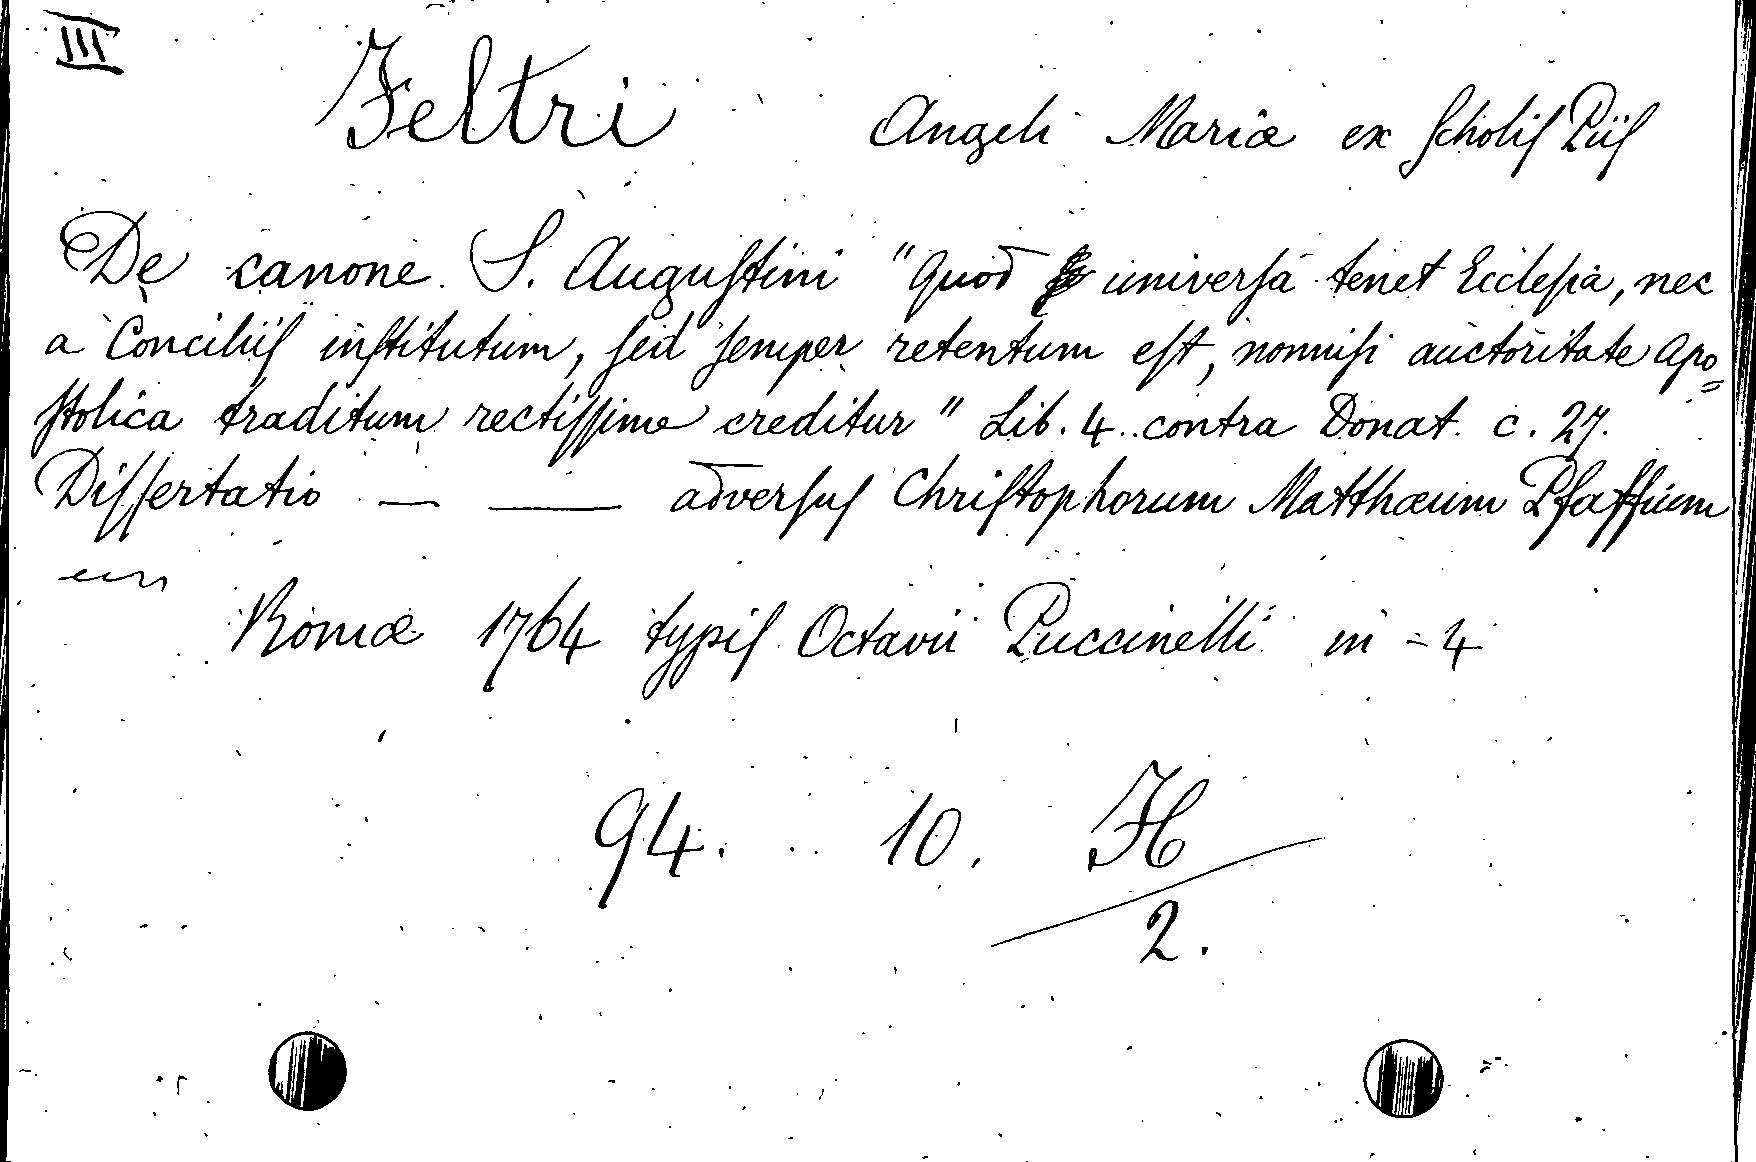 III
Feltri Angeli Mariæ ex Scholiſ Piiſ
De canone S. Auguſtini "Quod univerſa tenet Eccleſia, nec
a Conciliiſ inſtitutum, ſed ſemper retentum eſt, nonniſi auctoritate apo=
ſtolica traditum rectiſſime creditur" Lib. 4. contra Donat. c. 27.
Diſſertatio — — adverſuſ Chriſtophorum Matthæum Pfaffium
Romæ 1764 typiſ Octavii Puccinelli in-4
94. 10. H
2.